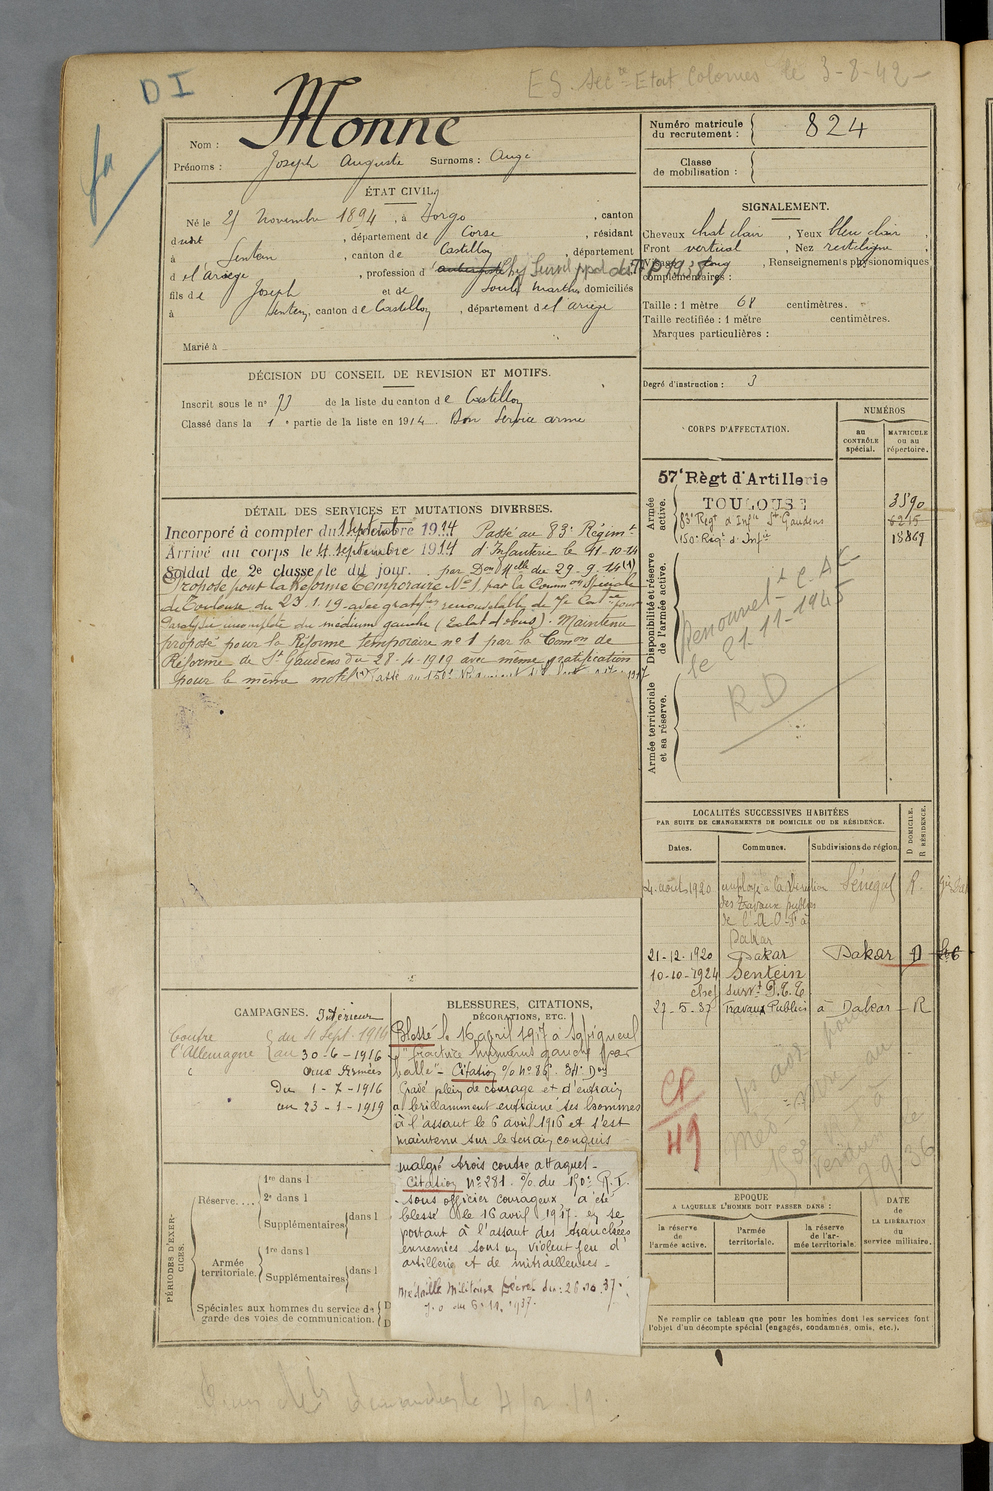 ES. Secre Etat Colonies le 3-8-42
DI
Nom : Monne
Prénoms : Joseph Auguste Surnoms : Ange
ÉTAT CIVIL
Né le 21 Novembre 1894, à Borgo, canton
dudit, département de Corse, résidant
à Sentein, canton de Castillon, département
d e l'Ariège, profession d
fils de Joseph et de Soula Marthe domiciliés
à Sentein, canton de Castillon, département de l'Ariège
Marié à
DÉCISION DU CONSEIL DE REVISION ET MOTIFS.
Inscrit sous le n° 73 de la liste du canton de Castillon
Classé dans la 1e partie de la liste en 1914. Bon Service armé
DÉTAIL DES SERVICES ET MUTATIONS DIVERSES.
Incorporé à compter du 1 septembre 1914 Passé au 83e Régimt
Arrivé au corps le 4 septembre 1914 d'Infanterie le 11-10-14
Soldat de 2e classe le dit jour. par Don Mlle du 29-9-14 (1)
Proposé pour la Réforme Temporaire N° 1 par la Common Spéciale
de Toulouse du 23.1.19 avec gratifon renouvelable de 7e Catie pour
Paralysie incomplète du médium gauche (Eclat d'obus). Maintenu
proposé pour la Réforme temporaire n° 1 par la Common de
Réforme de St Gaudens du 28-4-1919 avec même gratification
pour le même motif
CAMPAGNES. Intérieur
Contre l'Allemagne
du 4 Sept. 1914
au 30-6-1916
aux Armées
Du 1-7-1916
au 23-1-1919
BLESSURES, CITATIONS,
DÉCORATIONS, ETC.
Blessé le 16 avril 1917 à Sapigneul
"fracture humérus gauche par
balle" - Citation % n° 86. 34e Don
Gradé plein de courage et d'entrain
a brillamment entrainé ses hommes
à l'assaut le 6 avril 1916 et s'est
maintenu sur le terrain conquis
malgré trois contre attaques -
Citation N° 281. % du 150e R.I.
- Sous officier courageux, a été
blessé le 16 avril 1917. en se
portant à l'assaut des tranchées
ennemies sous un violent feu d'
artillerie et de mitrailleuses -
Médaille Militaire Décret du: 26.10.37.
J.O du 6.11.1937.
PÉRIODES D'EXERCICES.
Réserve....
1re dans l
2e dans l
Supplémentaires dans l
Armée territoriale.
1re dans l
Supplémentaires dans l
Spéciales aux hommes du service de
garde des voies de communication.
Numéro matricule
du recrutement : 824
Classe
de mobilisation :
SIGNALEMENT.
Cheveux chat clair, Yeux bleu clair,
Front vertical, Nez rectiligne,
Visage long, Renseignements physionomiques
complémentaires :
Taille : 1 mètre 68 centimètres.
Taille rectifiée : 1 mètre centimètres.
Marques particulières :
Degré d'instruction : 3
CORPS D'AFFECTATION.
NUMÉROS
au CONTRÔLE spécial.
MATRICULE ou au répertoire.
Armée active.
57e Règt d'Artillerie
TOULOUSE 3590
83e Régt d'Infie St Gaudens 6215
150e Régt d'Infie 18869
Disponibilité et réserve de l'armée active.
le 21-11-1945
Armée territoriale et sa réserve.
R D
LOCALITÉS SUCCESSIVES HABITÉES
PAR SUITE DE CHANGEMENTS DE DOMICILE OU DE RÉSIDENCE.
Dates. Communes. Subdivisions de région. D DOMICILE. R RÉSIDENCE.
4 août 1920 employé à la Direction Sénégal R.
des Travaux publics
de l'A.O.F. à
Dakar
21-12-1920 Dakar Dakar D
10-10-1924 Sentein
chef survt P.T.T.
27-5-37 Travaux Publics à Dakar R
CP
49
EPOQUE
A LAQUELLE L'HOMME DOIT PASSER DANS :
la réserve de l'armée active.
l'armée territoriale.
la réserve de l'armée territoriale.
DATE
de
LA LIBÉRATION
du
service militaire.
Ne remplir ce tableau que pour les hommes dont les services font
l'objet d'un décompte spécial (engagés, condamnés, omis, etc.).